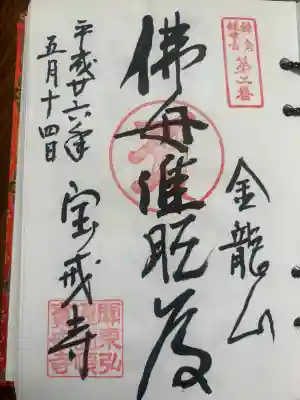 鎌倉
観世音
第二番
金龍山
佛母准胝尊
宝戒寺
平成廿六年
五月十四日
關東弘